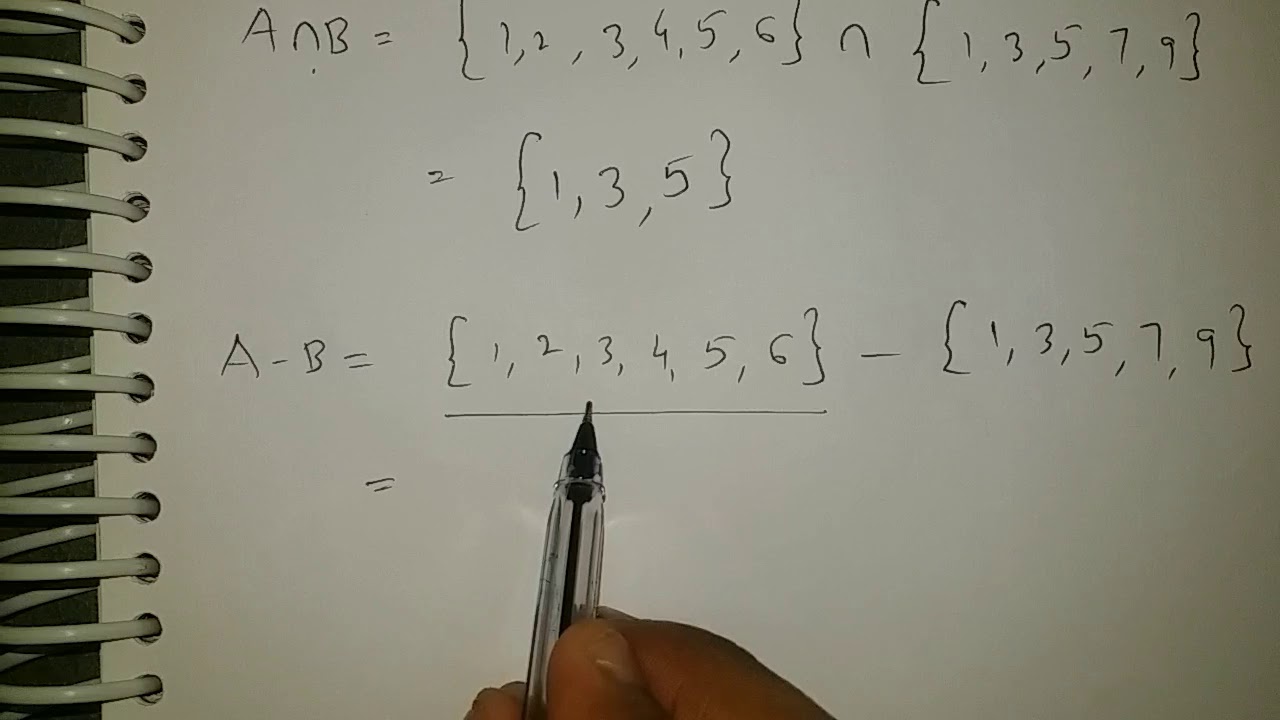 A∩B = {1,2,3,4,5,6} ∩ {1,3,5,7,9}
= {1,3,5}
A-B = {1,2,3,4,5,6} — {1,3,5,7,9}
=